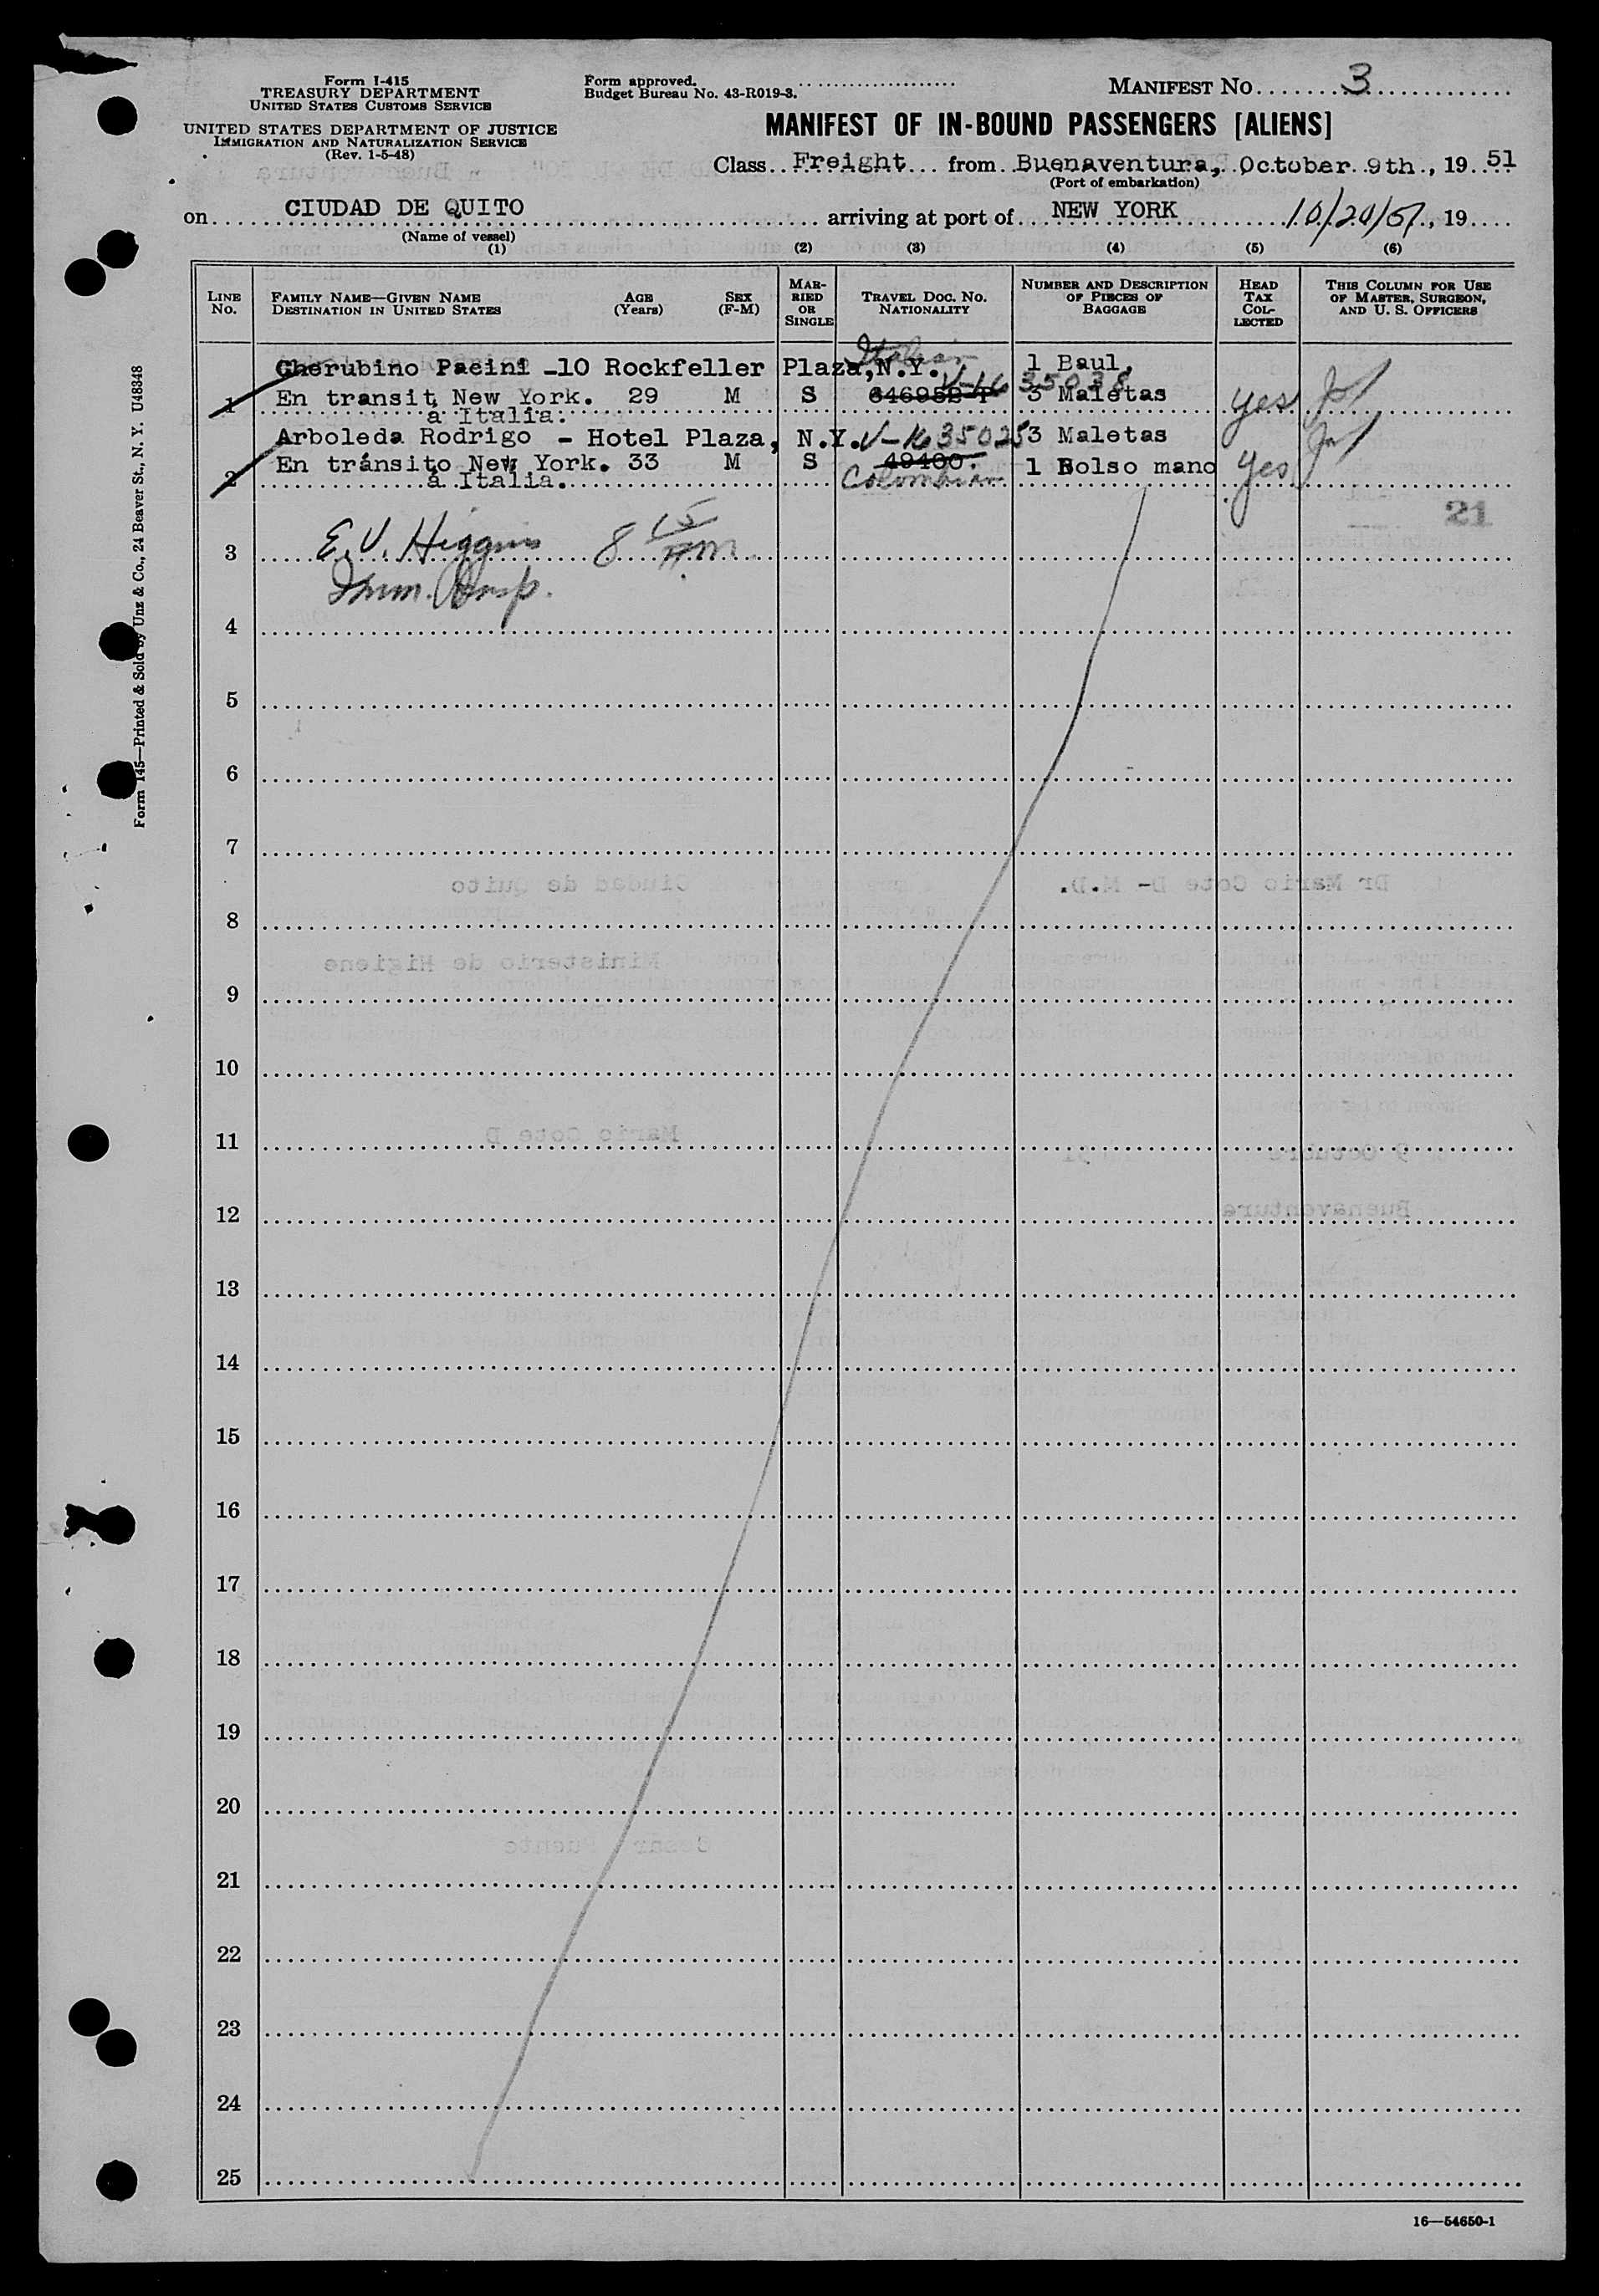 Form I-415
TREASURY DEPARTMENT
UNITED STATES CUSTOMS SERVICE
UNITED STATES DEPARTMENT OF JUSTICE
IMMIGRATION AND NATURALIZATION SERVICE
(Rev. 1-5-48)
Form approved.
Budget Bureau No. 43-R019-3.
MANIFEST NO. 3
MANIFEST OF IN-BOUND PASSENGERS [ALIENS]
Class Freight from Buenaventura, October 9th, 19 51
(Port of embarkation)
on CIUDAD DE QUITO arriving at port of NEW YORK 10/20/51, 19
(Name of vessel)
(1) (2) (3) (4) (5) (6)
LINE NO.
FAMILY NAME—GIVEN NAME
DESTINATION IN UNITED STATES
AGE
(Years)
SEX
(F-M)
MAR-
RIED
OR
SINGLE
TRAVEL DOC. NO.
NATIONALITY
NUMBER AND DESCRIPTION
OF PIECES OF
BAGGAGE
HEAD
TAX
COL-
LECTED
THIS COLUMN FOR USE
OF MASTER, SURGEON,
AND U. S. OFFICERS
Italian
Cherubino Pacini -10 Rockfeller Plaza, N.Y. 1 Baul,
V-1635038
1 En transit New York. 29 M S 3 Maletas yes
a Italia.
Arboleda Rodrigo - Hotel Plaza, N.Y. V-1635025 3 Maletas
2 En tránsito New York. 33 M S 49400. 1 Bolso mano yes
a Italia. Colombian
21
3 E. V. Higgins 8 15 PM
Imm. Insp.
4
5
6
7
8
9
10
11
12
13
14
15
16
17
18
19
20
21
22
23
24
25
16—54650-1
Form 145—Printed & Sold by Unz & Co., 24 Beaver St., N. Y. U48348